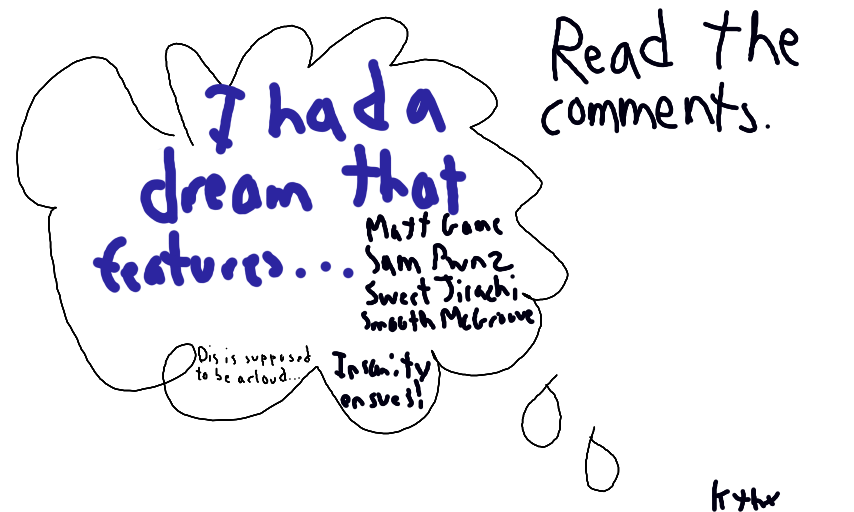 Read the
comments.
I had a
dream that
features...
Matt Game
Sam Pwnz
Sweet Jirachi
Smooth McGroove
Dis is supposed
to be a cloud...
Insanity
ensues!